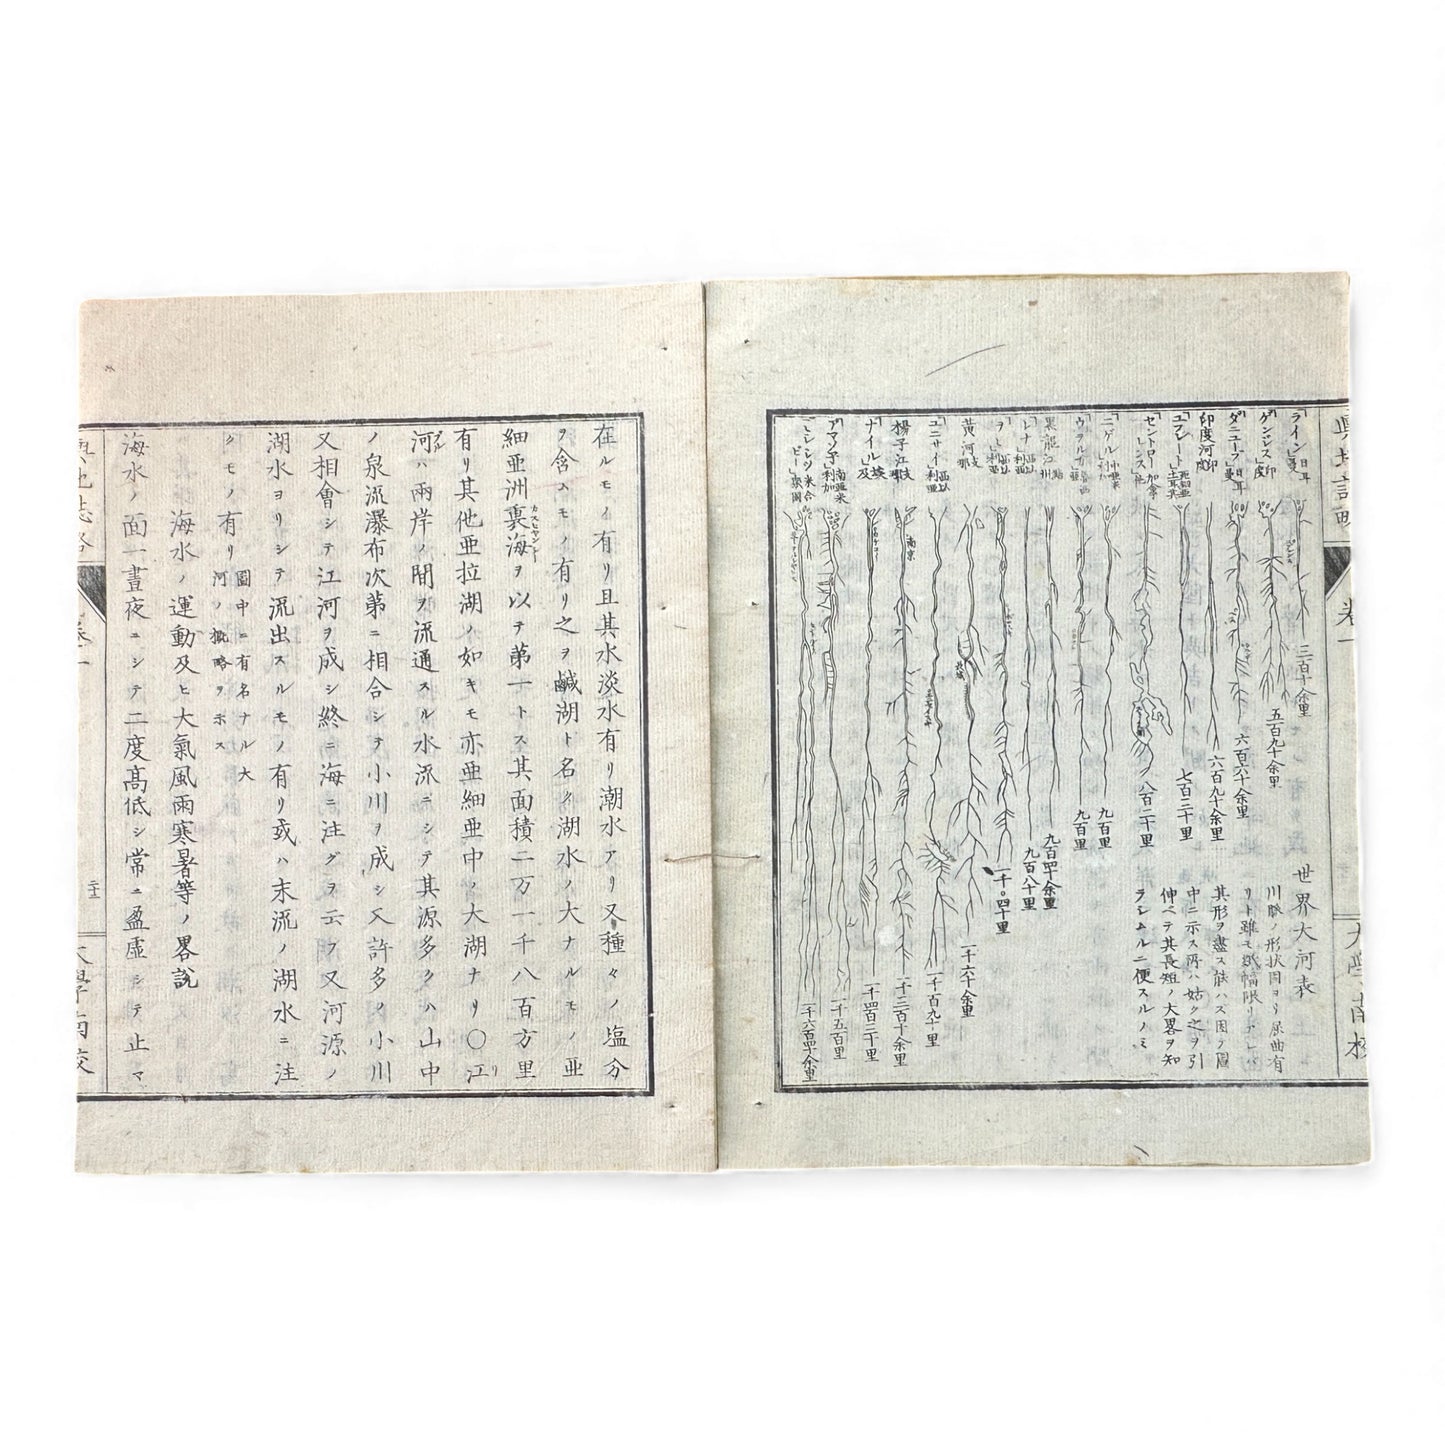 輿地誌略
卷一
大學南校
世界大河表
川脈ノ形状固ヨリ屈曲有
リト雖モ紙幅限リアレバ
其形ヲ盡ス能ハズ因テ圖
中ニ示ス所ハ姑ク之ヲ引
伸ベテ其長短ノ大畧ヲ知
ラシムルニ便スルノミ
ライン 日耳曼
三百十余里
ゲンジス 印度
五百九十余里
ダニューブ 日耳曼
六百六十余里
印度河 印
六百九十余里
七百二十里
セントローレンス
八百二十里
ニゲル
九百里
ウヲルガ
九百里
黒龍江
九百四十余里
レナ 西以利亜
九百八十里
ヲビ 西以利亜
一千〇四十里
黄河 支那
一千六十余里
ユニサイ 西以利亜
一千百九十里
揚子江 支那
南京
一千三百十余里
ナイル 埃及
一千四百二十里
アマソン 南亜米利加
一千五百里
ミシシッピー 米合衆国
一千六百四十余里
在ルモノ有リ且其水淡水有リ潮水アリ又種々ノ塩分
ヲ含ムモノ有リ之ヲ鹹湖ト名ク湖水ノ大ナルモノハ亜
細亜洲裏海ヲ以テ第一トス其面積二万一千八百方里
有リ其他亜拉湖ノ如キモ亦亜細亜中ノ大湖ナリ〇江
河ハ兩岸ノ間ヲ流通スル水流ニシテ其源多クハ山中
ノ泉流瀑布次第ニ相合シテ小川ヲ成シ又許多ノ小川
又相會シテ江河ヲ成シ終ニ海ニ注グヲ云フ又河源ノ
湖水ヨリシテ流出スルモノ有リ或ハ末流ノ湖水ニ注
クモノ有リ 圖中ニ有名ナル大河ノ概略ヲ示ス
海水ノ運動及ヒ大氣風雨寒暑等ノ畧説
海水ノ面一晝夜ニシテ二度高低シ常ニ盈虚シテ止マ
卷一
二十三
大學南校